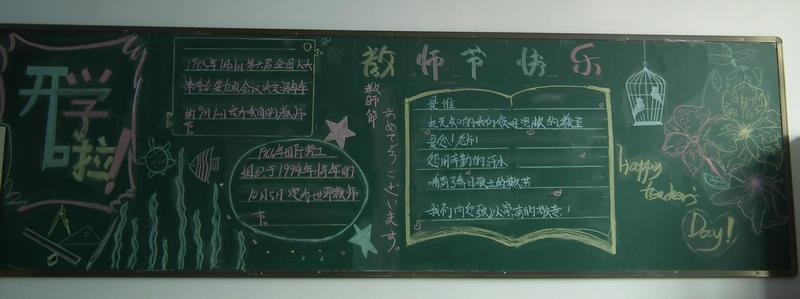 开学啦!
1985年1月21日第六届全国人大
常务会第九次会议决定将每年
的9月10日定为我国的教师
节
1966年国际劳工
组织于1994年将每年的
10月5日定为世界教师
节。
教师节快乐
教師節
おめでとうございます。
是谁
把无知的我们领进宽敞的教室
是您!老师!
您用辛勤的汗水
我们向您致以崇高的敬意!
Happy
teacher's
Day!